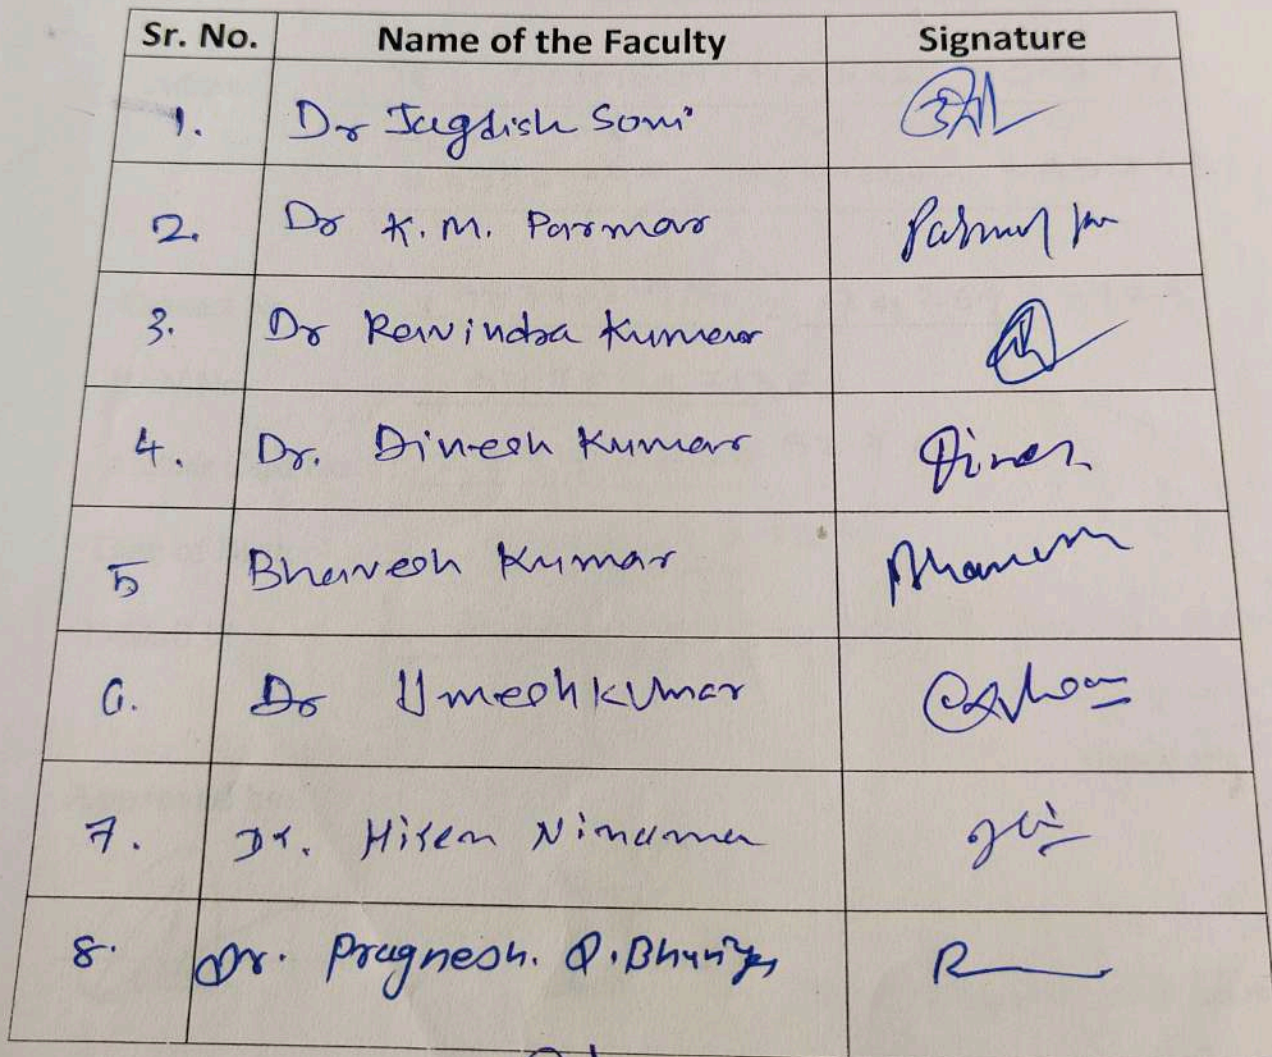 Sr. No. Name of the Faculty Signature
1. Dr Jagdish Soni
2. Dr K. M. Parmar Parmar
3. Dr Ravindra Kumar
4. Dr. Dinesh Kumar Dinesh
5 Bhavesh Kumar Bhavesh
6. Dr Umeshkumar
7. Dr. Hiren Ninama
8. Dr. Pragnesh.